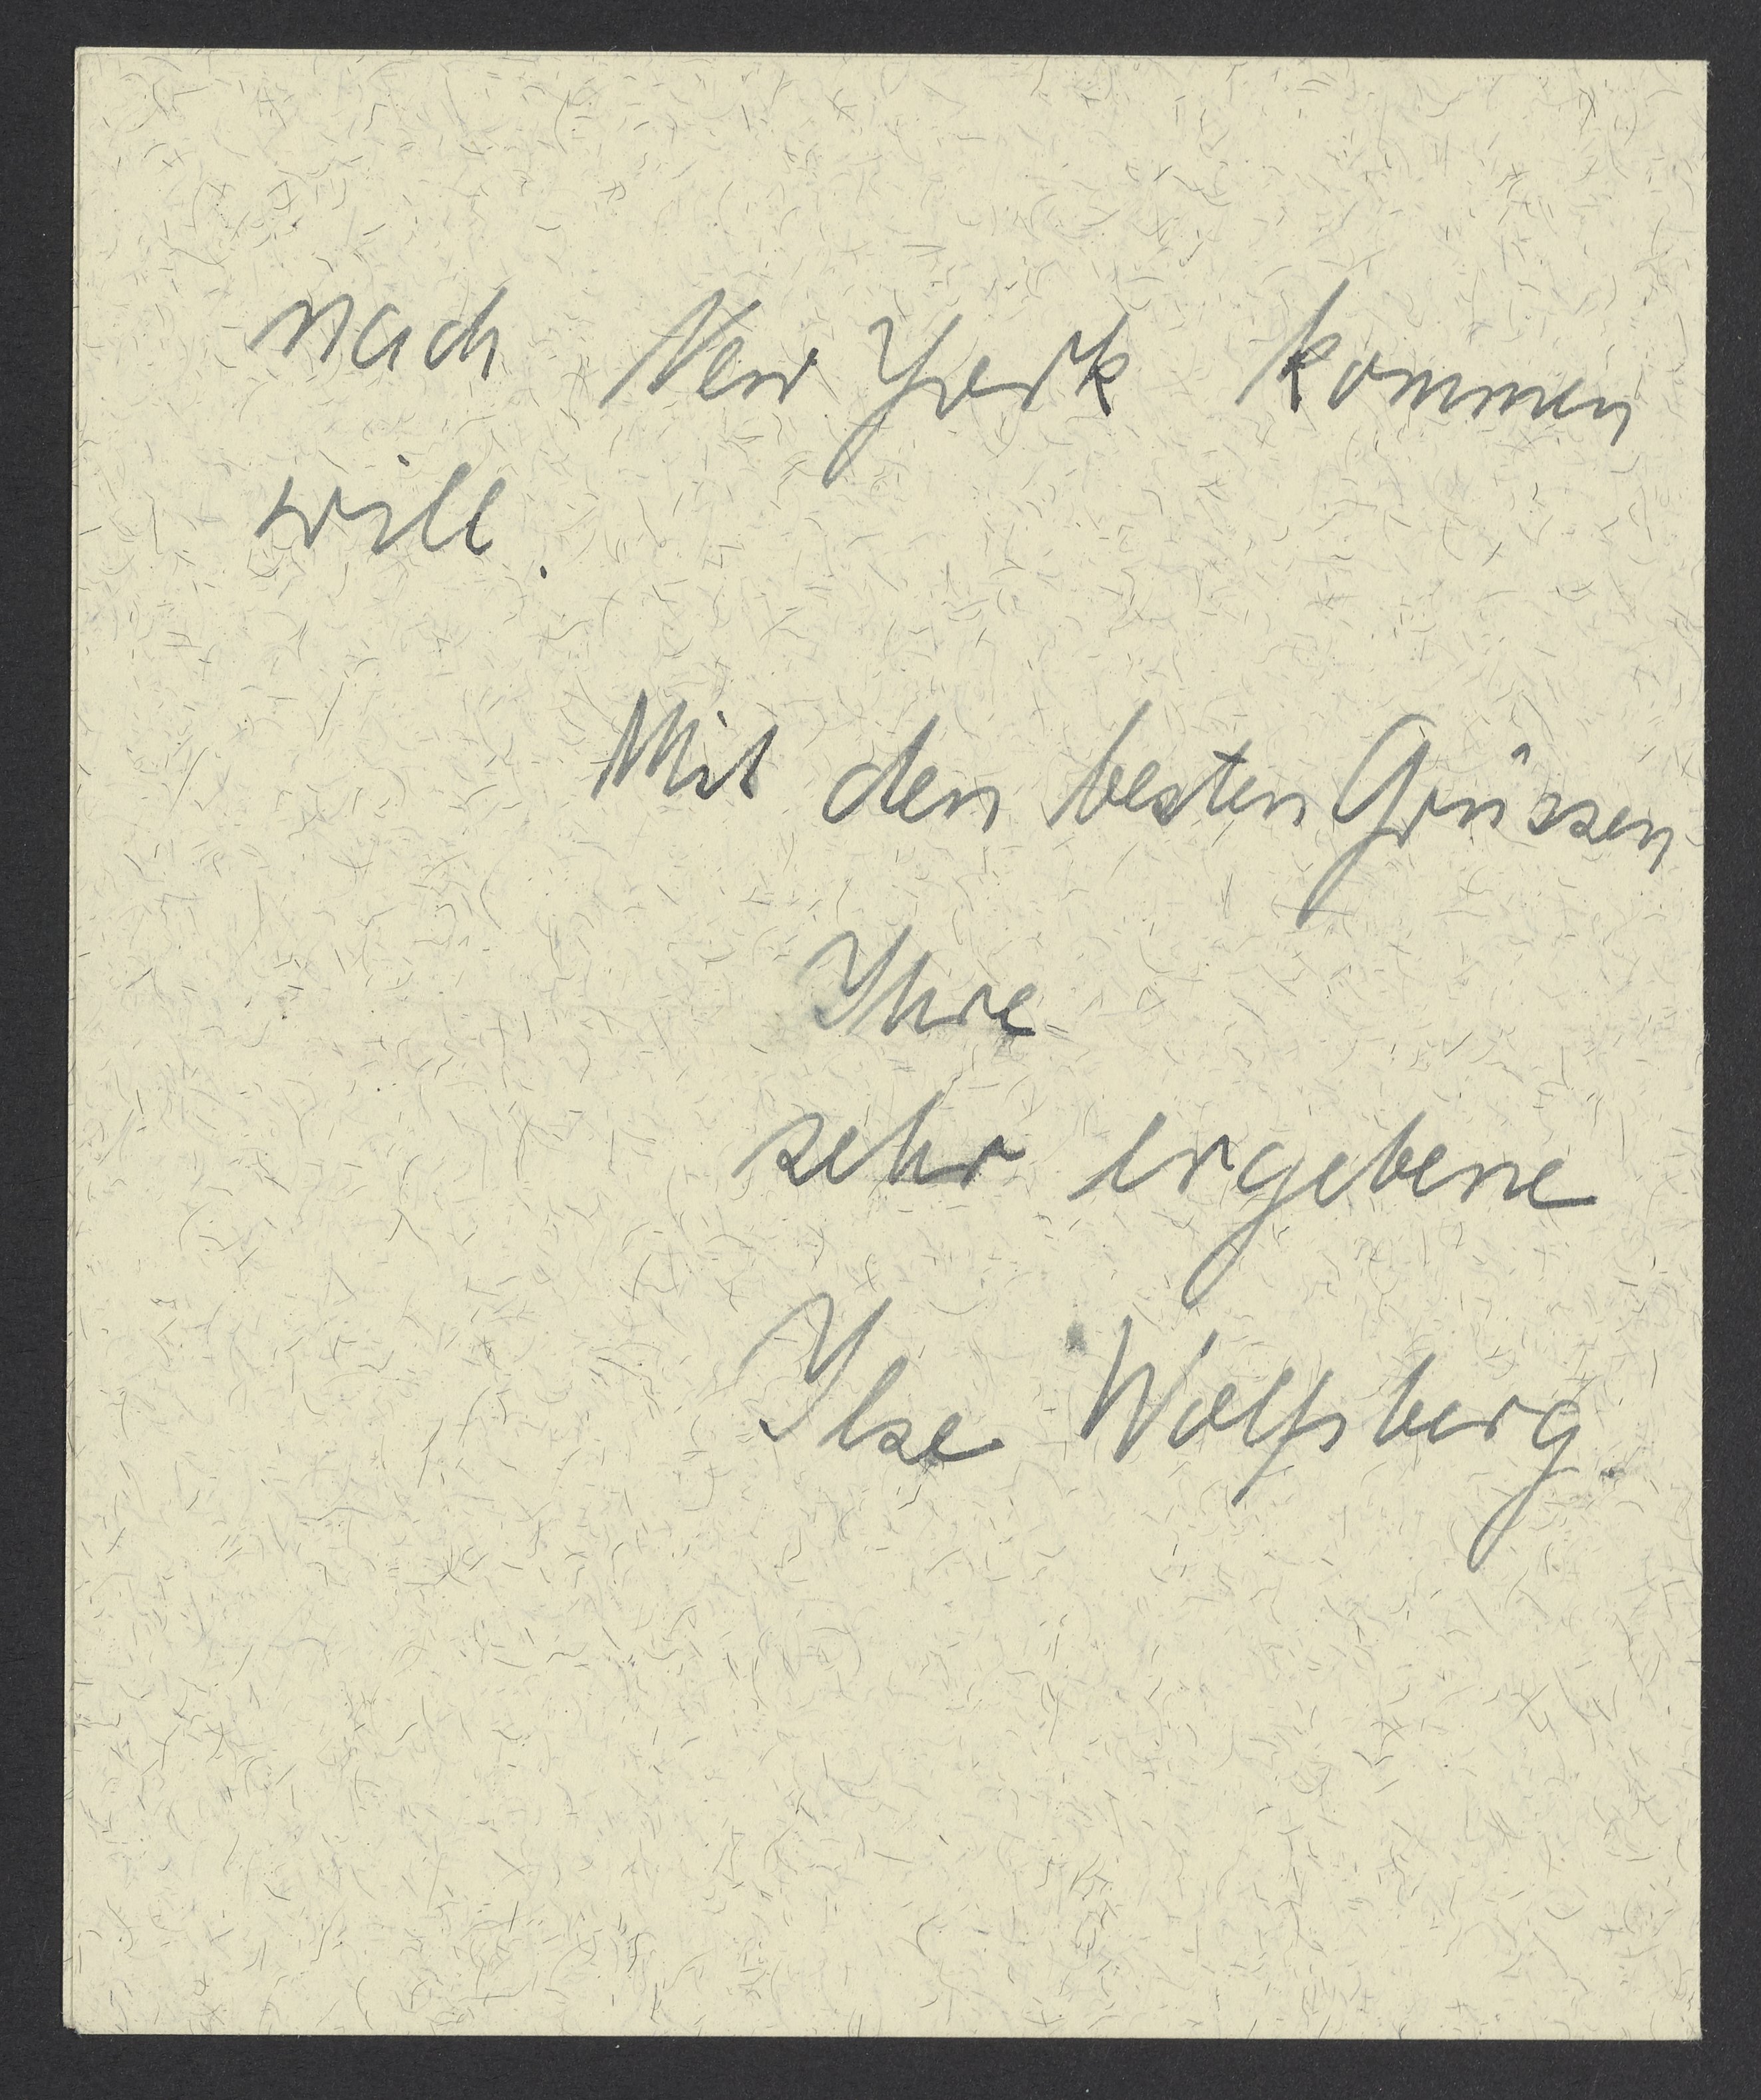 nach New York kommen
will.
Mit den besten Grüssen
Ihre
sehr ergebene
Ilse Wolfsberg.